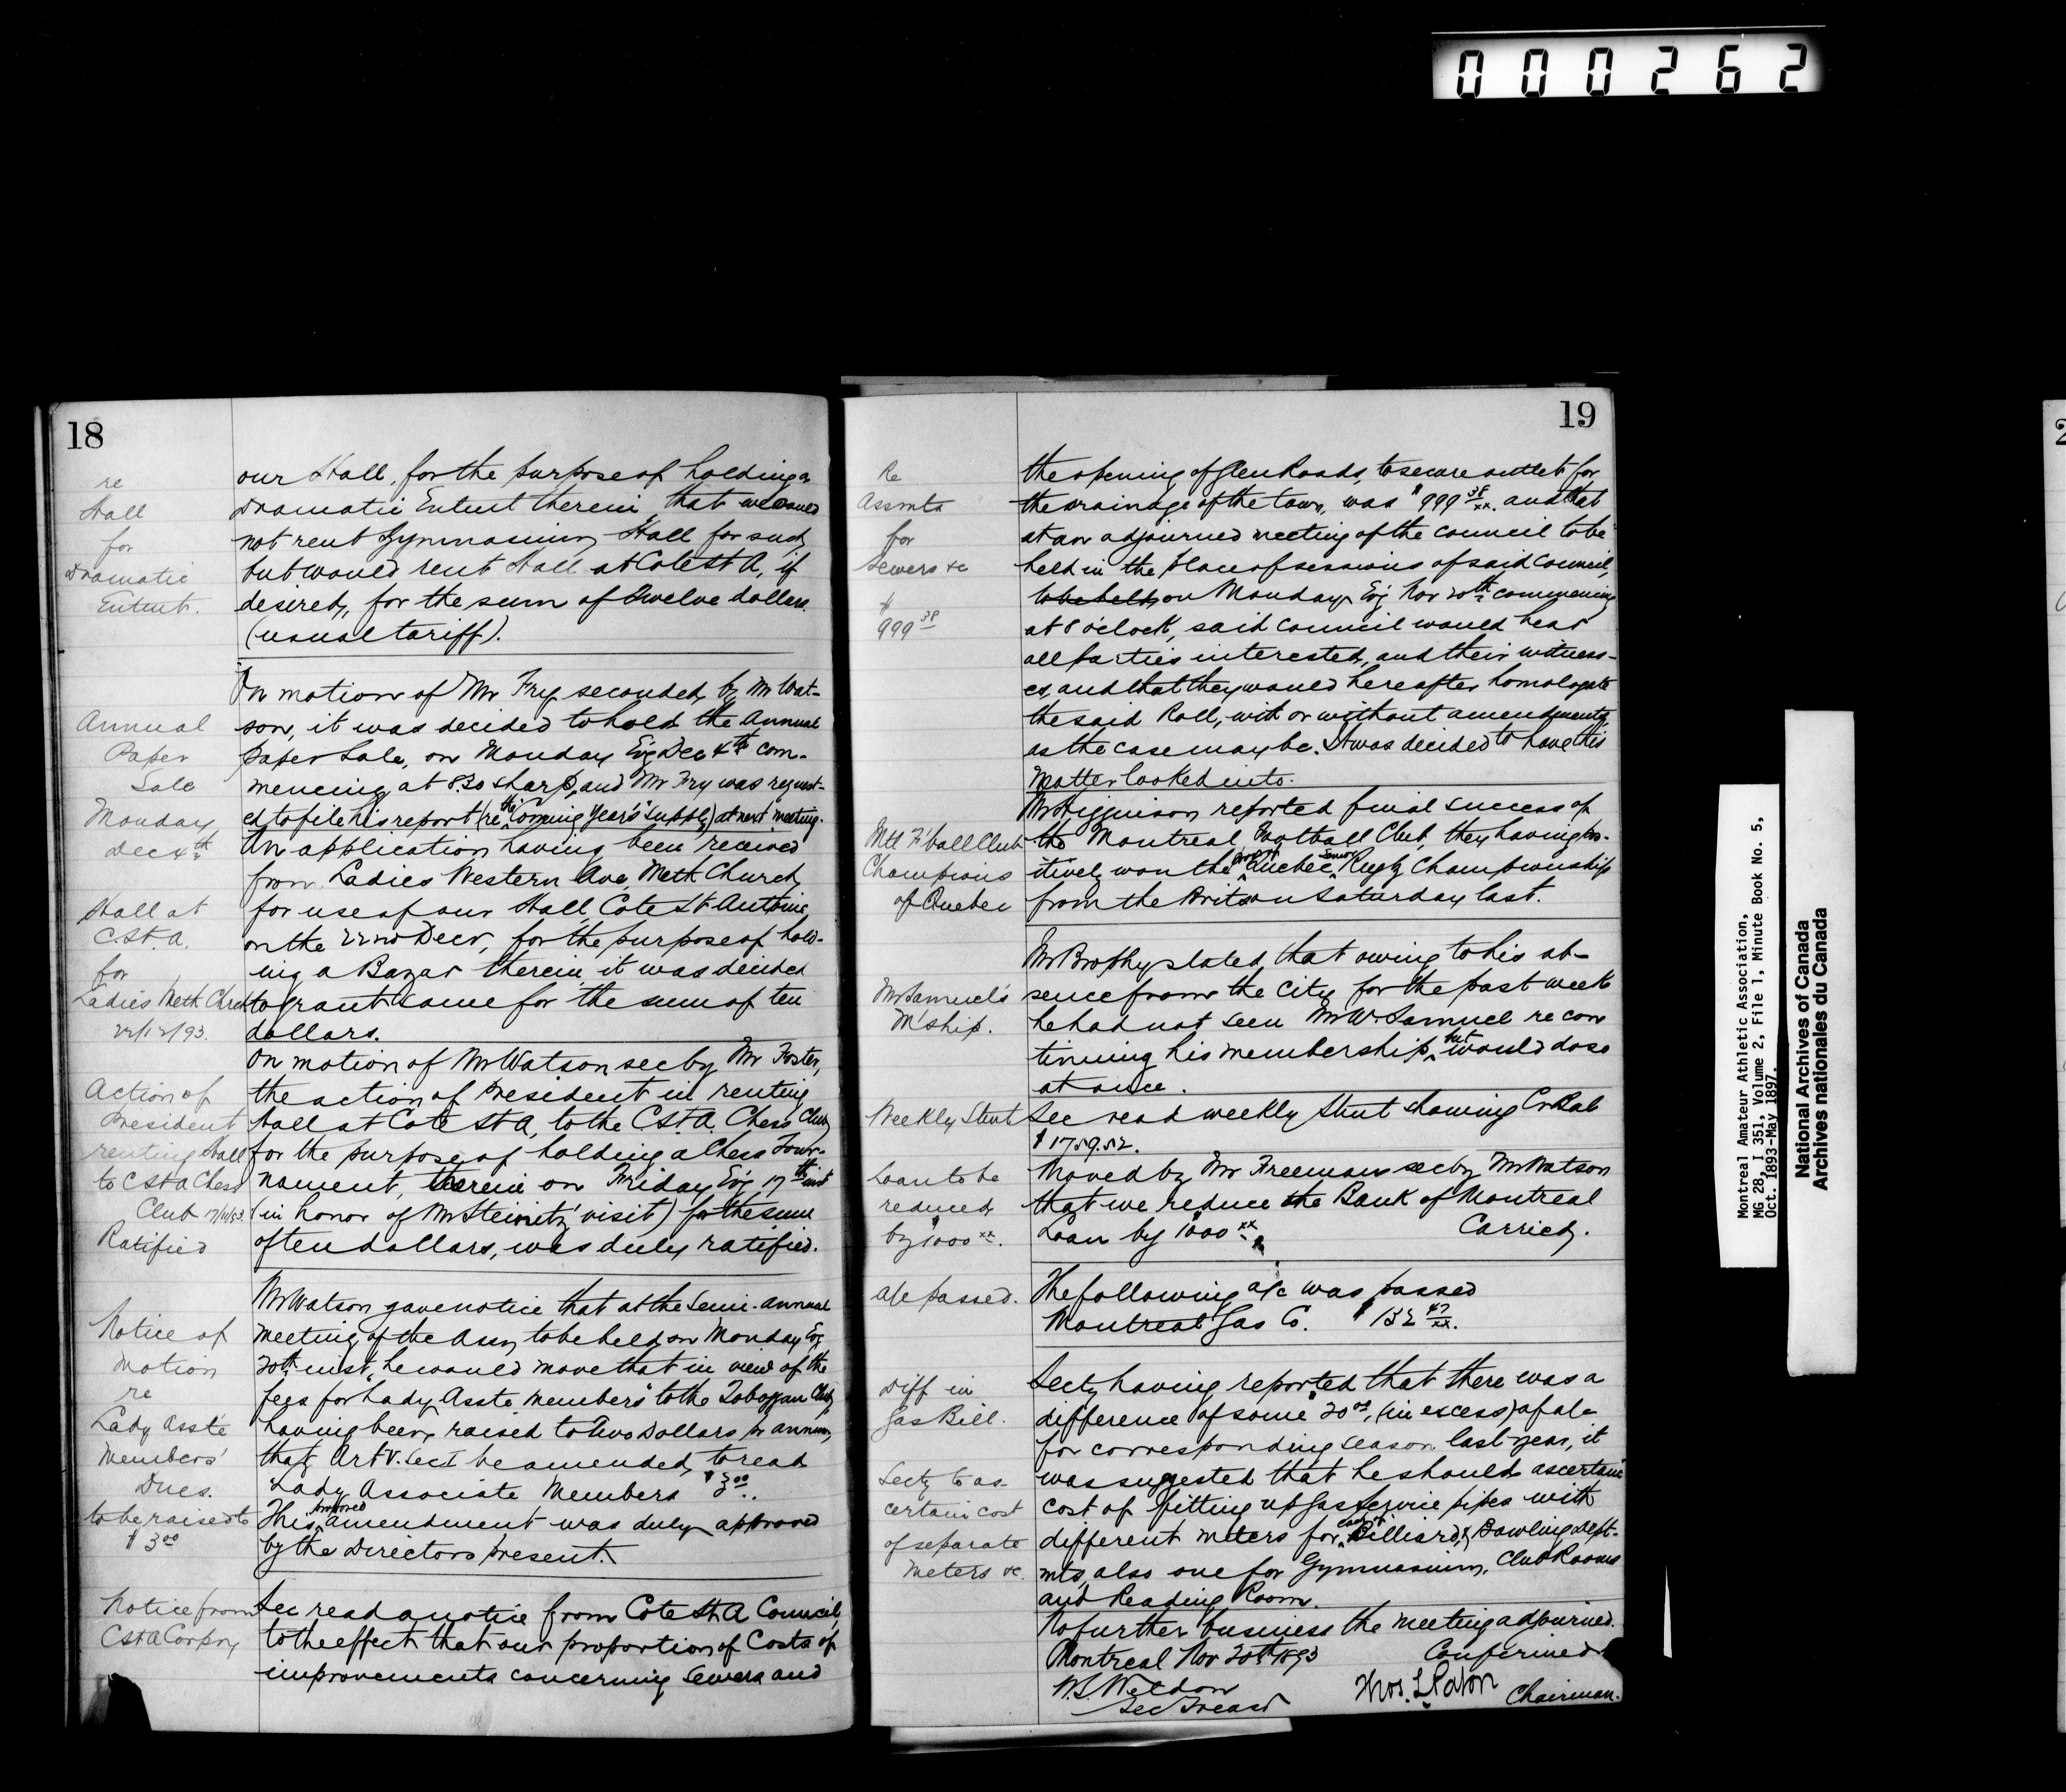 000262
18
re
Hall
for
Dramatic
Entmt.
our Hall, for the purpose of holding a
Dramatic Entmt therein, that we could
not rent Gymnasium Hall for such
but would rent Hall at Cote St A, if
desired, for the sum of Twelve dollars.
(usual tariff).
Annual
Paper
Sale
Monday
Dec 4th
On motion of Mr Fry seconded by Mr Wat-
son, it was decided to hold the Annual
paper Sale, on Monday Ev'g Dec 4th com-
mencing at 8.30 sharp, and Mr Fry was request-
ed to file his report (re the Coming Year's Supply) at next meeting.
Hall at
C.St.A.
for
Ladies Meth Church
22/12/93.
An application having been received
from Ladies Western Ave Meth Church
for use of our Hall, Cote St Antoine,
on the 22nd Decr, for the purpose of hold-
ing a Bazar therein, it was decided
to grant same for the sum of ten
dollars.
Action of
President
renting Hall
to CStA Chess
Club 17/11/93.
Ratified
On motion of Mr Watson sec by Mr Foster,
the action of President in renting
Hall at Cote St A, to the C.St.A. Chess Club
for the purpose of holding a Chess Tour-
nament, therein on Friday Ev'g 17th inst
(in honor of Mr Steinitz' visit) for the sum
of ten dollars, was duly ratified.
Notice of
Motion
re
Lady Asste
Members'
Dues.
to be raised to
$3 00
Mr Watson gave notice that at the Semi-annual
meeting of the Assn, to be held on Monday Ev'g
20th inst, he would move that in view of the
fees for Lady Asste members to the Tobogan Club
having been raised to Two Dollars pr annum,
that Art V. Sec I be amended, to read
Lady Associate Members $3 00..
This proposed amendment was duly approved
by the Directors present.
Notice from
CStA Corpn
Sec read a notice from Cote St A Council,
to the effect that our proportion of Costs of
improvements concerning Sewers and
19
Re
Assmts
for
Sewers &c
$
999 38
the opening of Glen Roads, to secure outlet for
the drainage of the town, was $999 38/xx. and that
at an adjourned meeting of the council to be
held in the place of sessions of said Council,
to be held, on Monday Ev'g Nov 20th commencing
at 8 o'clock, said council would hear
all parties interested, and their witness-
es, and that they would hereafter homologate
the said Roll, with or without amendments,
as the case may be. It was decided to have this
matter looked into.
Mtl F'ball Club
Champions
of Quebec
Mr Higginson reported final success of
the Montreal Football Club, they having pos-
itively won the Quebec Senior Rugby Championship
from the Brits on Saturday last.
Mr Samuel's
M'ship.
Mr Brophy stated, that owing to his ab-
sence from the City for the past week
he had not seen Mr W. Samuel re con
tinuing his membership, but would do so
at once.
Weekly Stmt
Sec read weekly Stmt showing Cr Bal
$1759.52.
Loan to be
reduced
by $1000 xx.
Moved by Mr Freeman sec by Mr Watson
that we reduce the Bank of Montreal
Loan by $1000 xx. Carried.
a/c passed.
The following a/c was passed
Montreal Gas Co. $132 47/xx.
Diff in
Gas Bill.
Secty to as-
certain cost
of separate
Meters &c.
Secty having reported that there was a
difference of some $20 00, (in excess) of a/c
for corresponding season last year, it
was suggested that he should ascertain
cost of fitting up gas service pipes with
different meters for each of Billiard, & Bowling Dept-
mts, also one for Gymnasium, Club Rooms
and Reading Room.
No further business the meeting adjourned.
Montreal Nov 20th 1893 Confirmed
W.S. Weldon
Sec Treasr
Thos. L Paton Chairman.
Montreal Amateur Athletic Association,
MG 28, I 351, Volume 2, File 1, Minute Book No. 5,
Oct. 1893-May 1897.
National Archives of Canada
Archives nationales du Canada